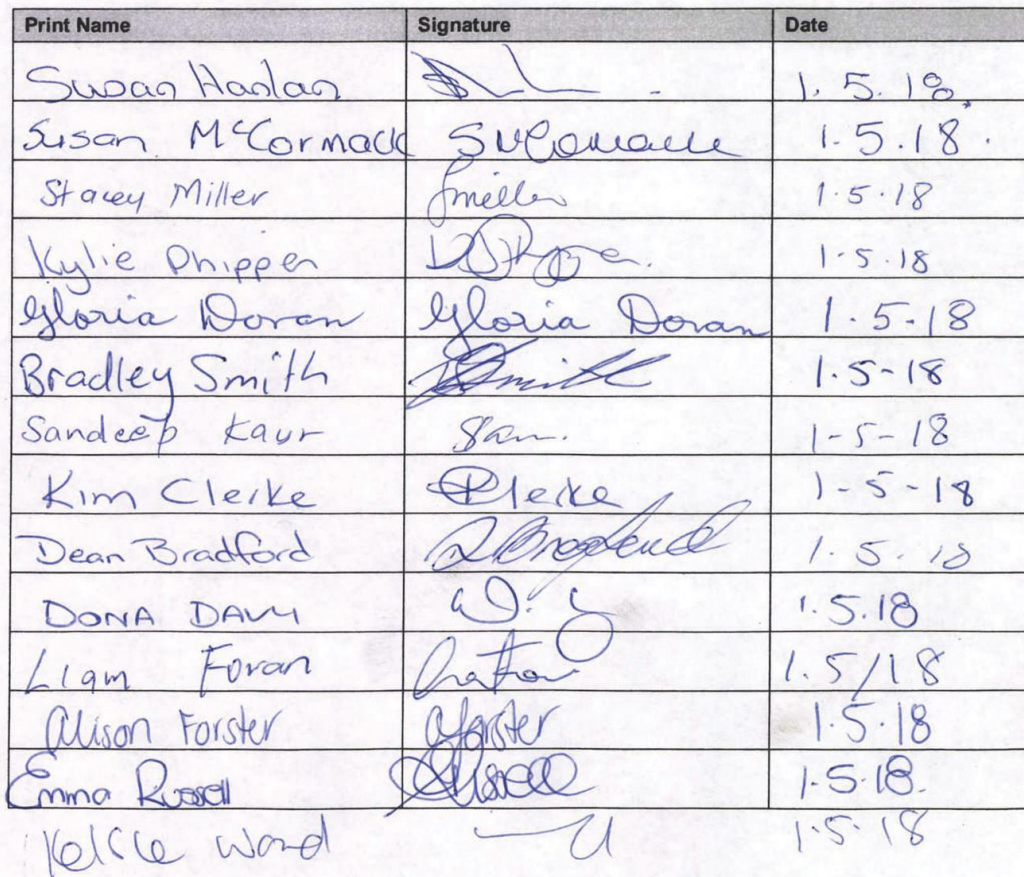 Print Name Signature Date
Susan Hanlan 1.5.18.
Susan McCormack SMcCormack 1.5.18.
Stacey Miller Smiller 1.5.18
Kylie Phippen 1.5.18
Gloria Doran Gloria Doran 1.5.18
Bradley Smith Smith 1.5-18
Sandeep Kaur San. 1-5-18
Kim Clerke Clerke 1-5-18
Dean Bradford D Bradford 1.5.18
DONA DAVY 1.5.18
Liam Foran 1.5/18
Alison Forster aforster 1.5.18
Emma Russell 1.5.18.
Ward 1.5.18